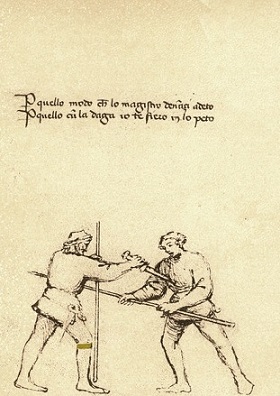 P quello modo ch lo magistro denãçi a deto
P quello cũ la daga io te fiero in lo peto